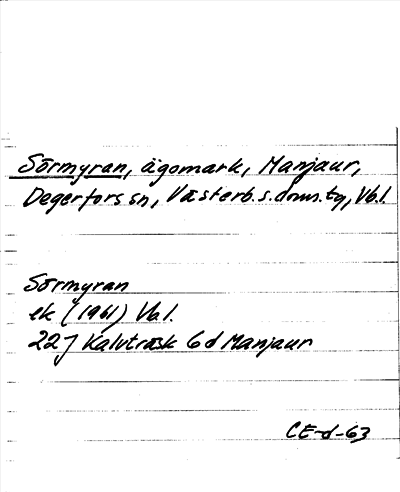 Sörmyran, ägomark, Manjaur,
Degerfors sn, Västerb.s. dom.tg, Vb.l.
Sörmyran
ek (1961) Vb l.
22J Kalvträsk 6d Manjaur
CE-d-63